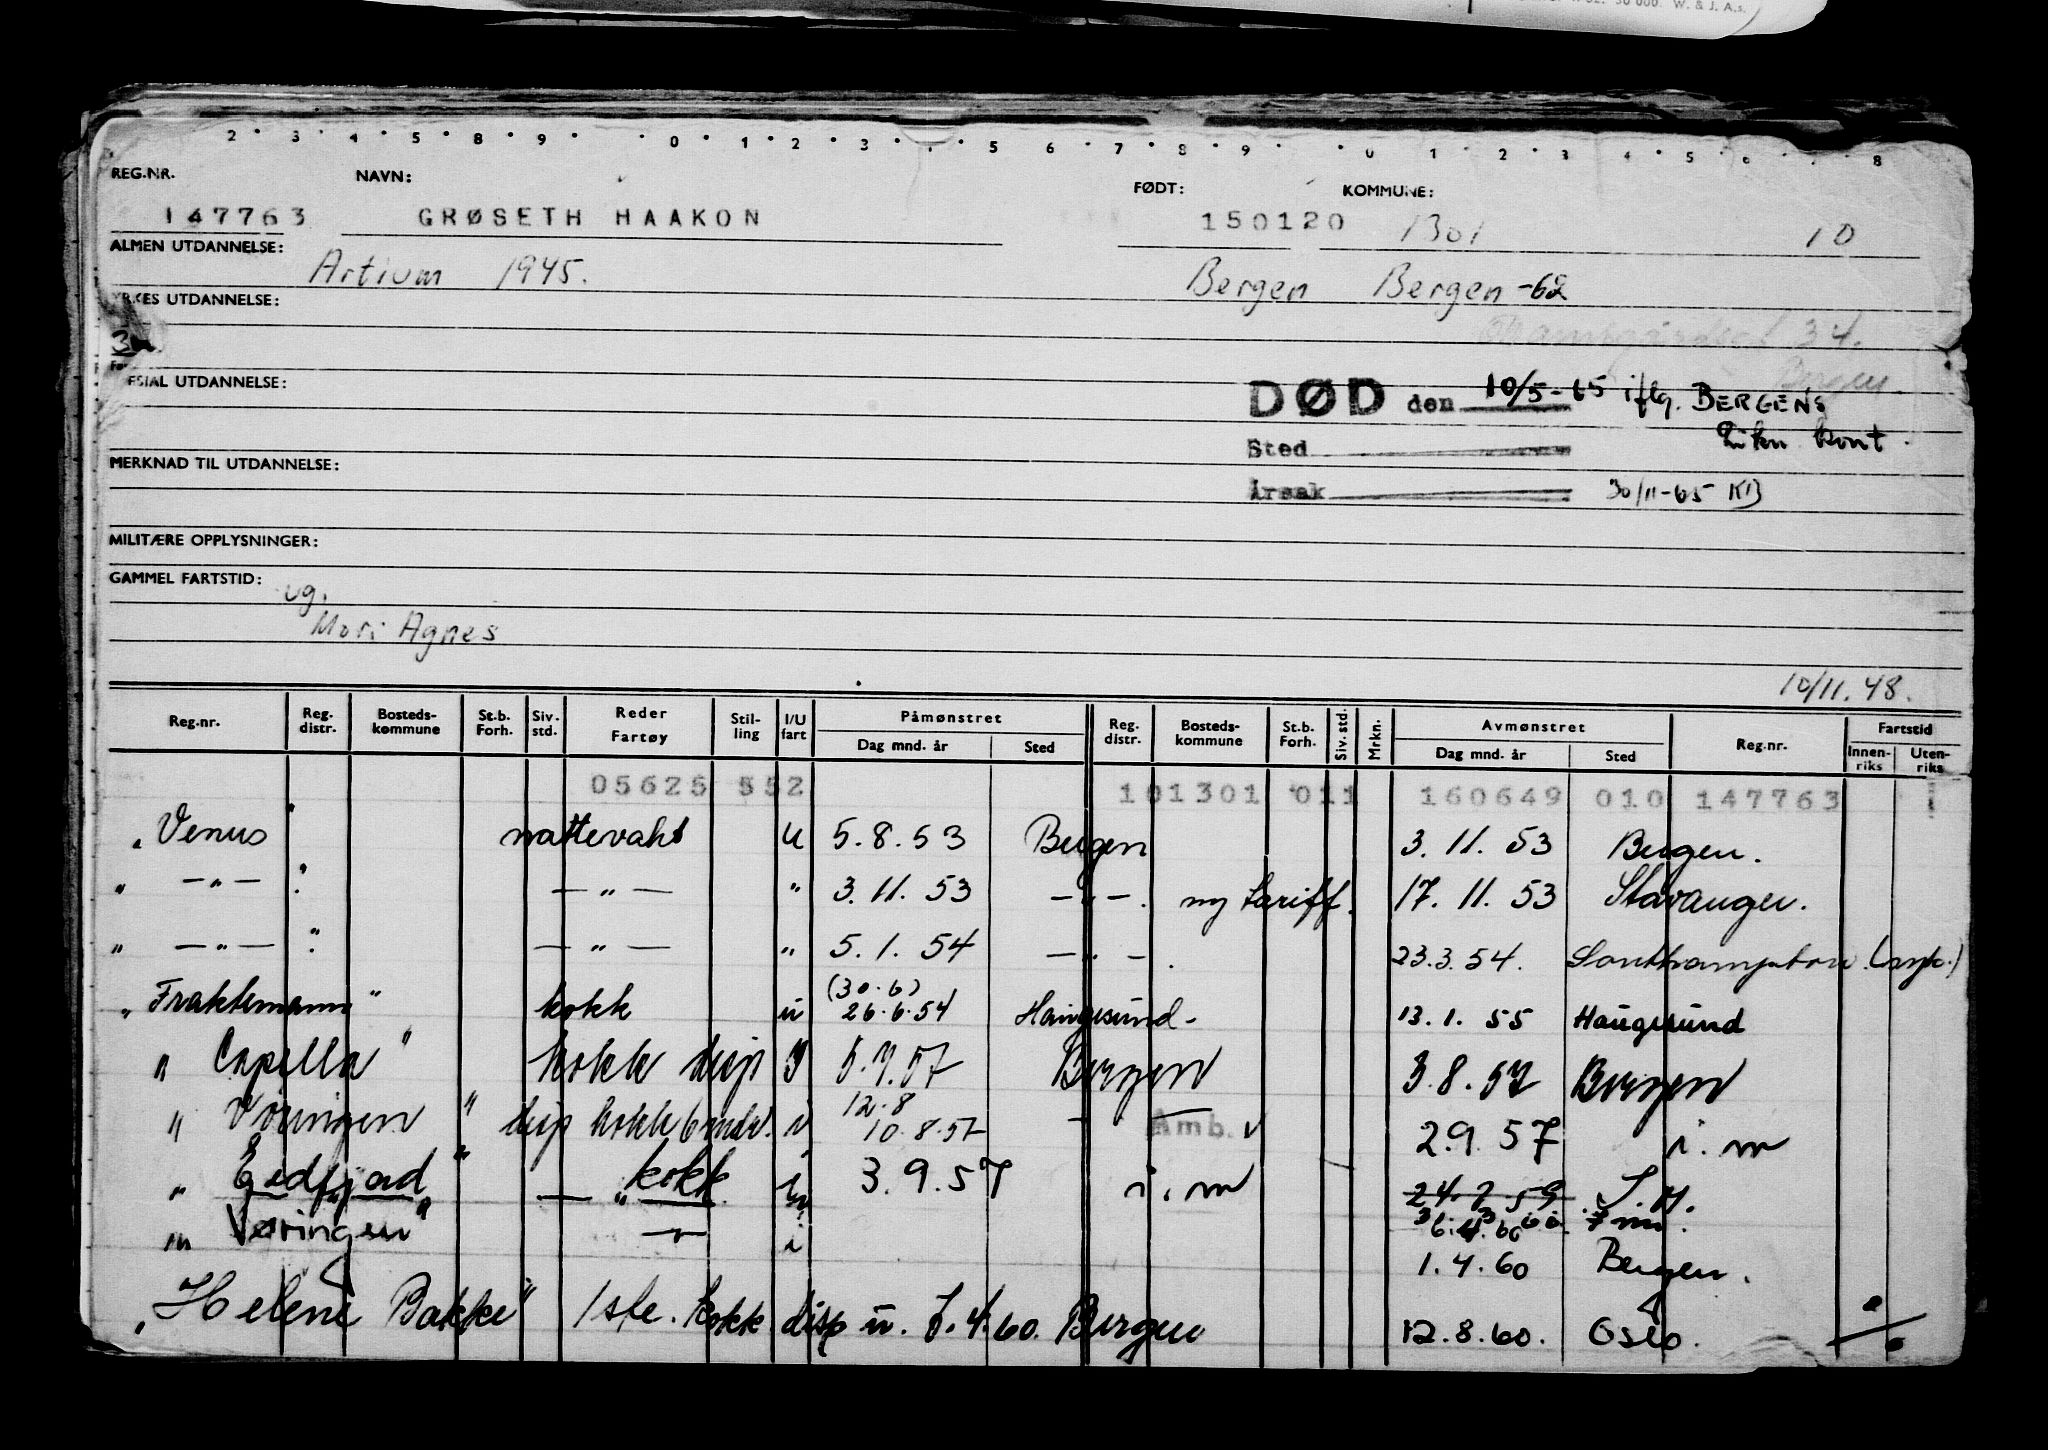 30 000. W. & J. A.s.
2 3 4 5 8 9 0 1 2 3 5 6 7 8 9 0 1 2 3 4 5 6 8
REG.NR. NAVN: FØDT: KOMMUNE:
147763 GRØSETH HAAKON 150120 1301 10
ALMEN UTDANNELSE: Artium 1945. Bergen Bergen -62
YRKES UTDANNELSE:
34.
Bergen
SPESIAL UTDANNELSE:
DØD den 10/5-65 iflg. BERGENS
Sted kont.
MERKNAD TIL UTDANNELSE:
Årsak 30/11-65 KB
MILITÆRE OPPLYSNINGER:
GAMMEL FARTSTID:
ug.
Mori Agnes
10/11.48.
Reg.nr. Reg. distr. Bosteds-kommune St.b. Forh. Siv. std. Reder Fartøy Stil-ling I/U fart Påmønstret Dag mnd. år Sted Reg. distr. Bosteds-kommune St.b. Forh. Siv. std. Mrkn. Avmønstret Dag mnd. år Sted Reg.nr. Fartstid Innen-riks Uten-riks
05625 552 101301 011 160649 010 147763
"Venus" nattevakt u 5.8.53 Bergen 3.11.53 Bergen.
" —"— " —"— " 3.11.53 —"—. ny tariff. 17.11.53 Stavanger.
" —"— " —"— " 5.1.54 —"—. 23.3.54. Southampton. (syk.)
(30.6)
"Fraktemann" kokk u 26.6.54 Haugesund- 13.1.55 Haugesund
"Capella" kokk disp 5.7.57 Bergen 3.8.57 Bergen
12.8
"Vøringen" disp kokk 6 mdr. i 10.8.57 — Amb. 2.9.57 i.m
"Eidfjord" —"— kokk 3.9.57 i.m
"Vøringen" —"— i
1.4.60 Bergen.
"Helene Bakke" 1ste. kokk disp u. 7.4.60. Bergen 12.8.60. Oslo.